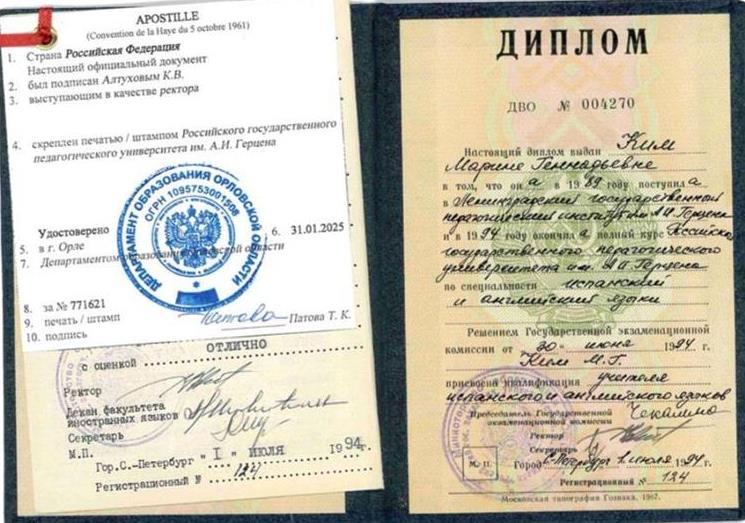 APOSTILLE
(Convention de la Haye du 5 octobre 1961)
1. Страна Российская Федерация
Настоящий официальный документ
2. был подписан Алтуховым К.В.
3. выступающим в качестве ректора
4. скреплен печатью / штампом Российского государственного
педагогического университета им. А.И. Герцена
Удостоверено
5. в г. Орле
6. 31.01.2025
7. Департаментом образования Орловской области
8. за № 771621
9. печать / штамп
10. подпись
Патова Т. К.
ДЕПАРТАМЕНТ ОБРАЗОВАНИЯ ОРЛОВСКОЙ ОБЛАСТИ
ОГРН 1095753001506
ОТЛИЧНО
с оценкой
Ректор
Декан факультета
иностранных языков
Секретарь
М.П.
Гор. С.-Петербург " 1 " ИЮЛЯ 1994г.
Регистрационный № 124
ДИПЛОМ
ДВО № 004270
Настоящий диплом выдан Ким
Марине Геннадьевне
в том, что он а в 1989 году поступил а
в Ленинградский государственный
педагогический институт им. А.И. Герцена
и в 1994 году окончил а полный курс Российского
государственного педагогического
университета им. А.И. Герцена
по специальности испанский
и английский языки
Решением Государственной экзаменационной
комиссии от " 30 " июня 1994 г.
Ким М.Г.
присвоена квалификация учителя
испанского и английского языков
Председатель Государственной
экзаменационной комиссии
Ректор
Секретарь
М. П.
Город С-Петербург 1 июля 1994г.
Регистрационный № 124
Московская типография Гознака. 1987.